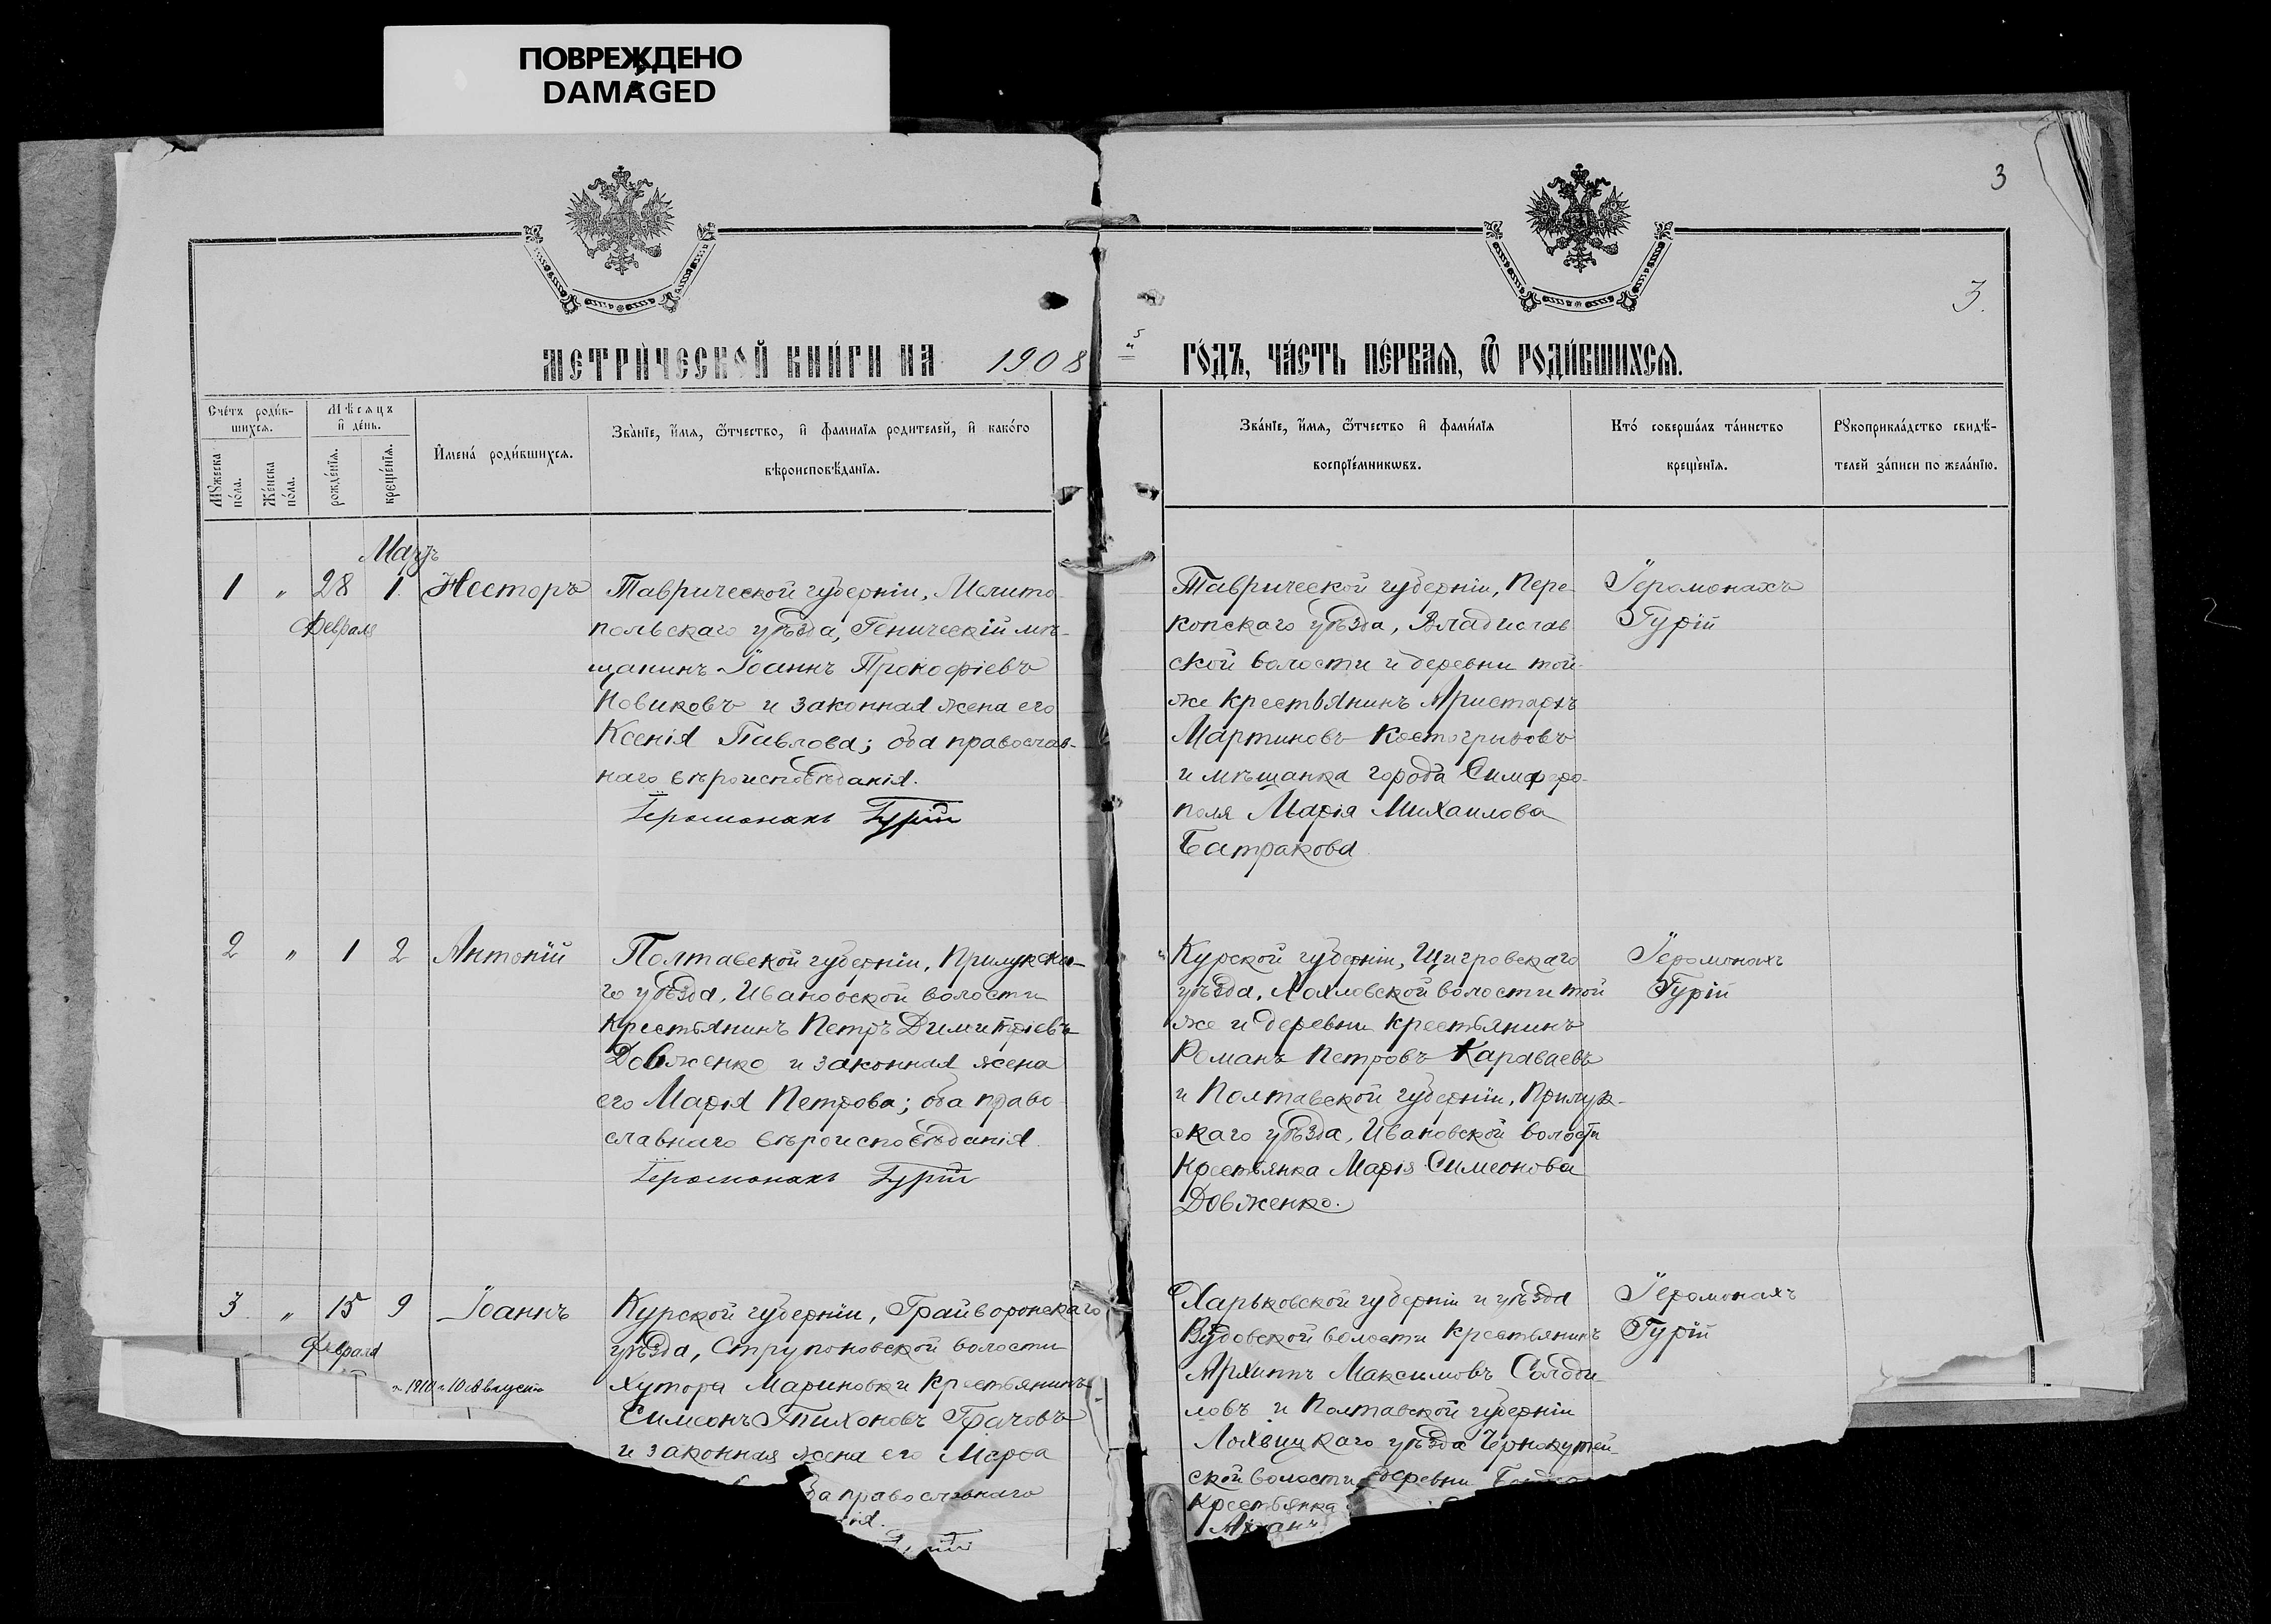 ПОВРЕЖДЕНО
DAMAGED
3
3.
МЕТРИ́ЧЕСКОЙ КНИ́ГИ НА 1908 ГО́ДЪ, ЧА́СТЬ ПЕ́РВАѦ, Ѿ РОДИ́ВШИХСѦ.
Сче́тъ роди́в-
шихсѧ.
Мꙋ́жеска по́ла.
Же́нска по́ла.
Мѣ́сѧцъ
и҆ де́нь.
рожде́нїѧ.
креще́нїѧ.
И҆мена́ роди́вшихсѧ.
Зва́нїе, и҆́мѧ, ѻ҆́тчество, и҆ фами́лїѧ роди́телей, и҆ како́гѡ
вѣроисповѣ́данїѧ.
Зва́нїе, и҆́мѧ, ѻ҆́тчество и҆ фами́лїѧ
воспрїе́мникѡвъ.
Кто̀ соверша́лъ та́инство
креще́нїѧ.
Рꙋкоприкла́дство свидѣ́-
телей за́писи по жела́нїю.
Мартъ
1 " 28 1. Несторъ
Февраля
Таврической губерніи, Мелито
польскаго уѣзда, Геническій мѣ-
щанинъ Іоаннъ Прокофіевъ
Новиковъ и законная жена его
Ксенія Павлова; оба православ-
наго вѣроисповѣданія.
Іеромонахъ Гурій
Таврической губерніи, Пере-
копскаго уѣзда, Владислав
ской волости и деревни той-
же крестьянинъ Аристархъ
Мартиновъ Костогризовъ
и мѣщанка города Симферо-
поля Марія Михаилова
Батракова
Іеромонахъ
Гурій
2 " 1 2 Антоній
Полтавской губерніи, Прилукска-
го уѣзда, Ивановской волости
крестьянинъ Петръ Димитріевъ
Довженко и законная жена
его Марія Петрова; оба право
славнаго вѣроисповѣданія.
Іеромонахъ Гурій
Курской губерніи, Щигровскаго
уѣзда, Хохловской волости той
же и деревни крестьянинъ
Романъ Петровъ Караваевъ
и Полтавской губерніи, Прилук-
скаго уѣзда, Ивановской волости
крестьянка Марія Симеонова
Довженко.
Іеромонахъ
Гурій
3 " 15 9 Іоаннъ
Февраля
1910 г. 10 Августа
Курской губерніи, Грайворонскаго
уѣзда, Струпоновской волости
хутора Мариновки крестьянинъ
Симеонъ Тихоновъ Грачовъ
и законная жена его Марфа
православнаго
Харьковской губерніи и уѣзда
волости крестьянинъ
Архипъ Максимовъ Солоди
ловъ и Полтавской губерніи
Лохвицкаго уѣзда
ской волости деревни
крестьянка
Іеромонахъ
Гурій